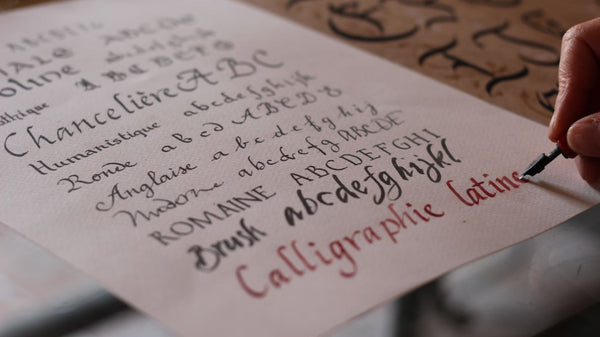 ABCDEFG
ABCDE
oline ABCDEFG
Chancelière ABC
Humanistique abcdefghijk
Ronde abcd ABCDE
Anglaise abcdefghij
Moderne abcdefg ABCDE
ROMAINE ABCDEFGHI
Brush abcdefghijkl
Calligraphie latine